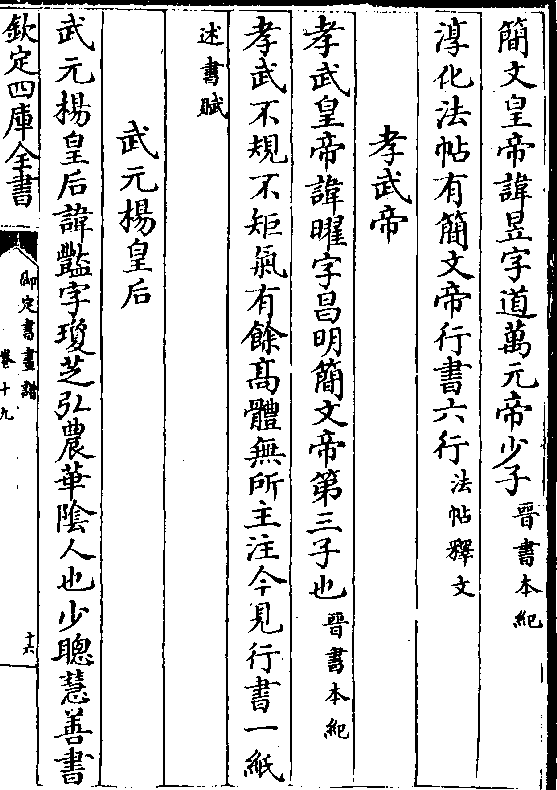 簡文皇帝諱昱字道萬元帝少子晉書本紀
淳化法帖有簡文帝行書六行法帖釋文
孝武帝
孝武皇帝諱曜字昌明簡文帝第三子也晉書本紀
孝武不規不矩氣有餘高體無所主注今見行書一紙
述書賦
武元楊皇后
武元楊皇后諱豔字瓊芝弘農華陰人也少聰慧善書
欽定四庫全書
御定書畫譜
卷十九
十六